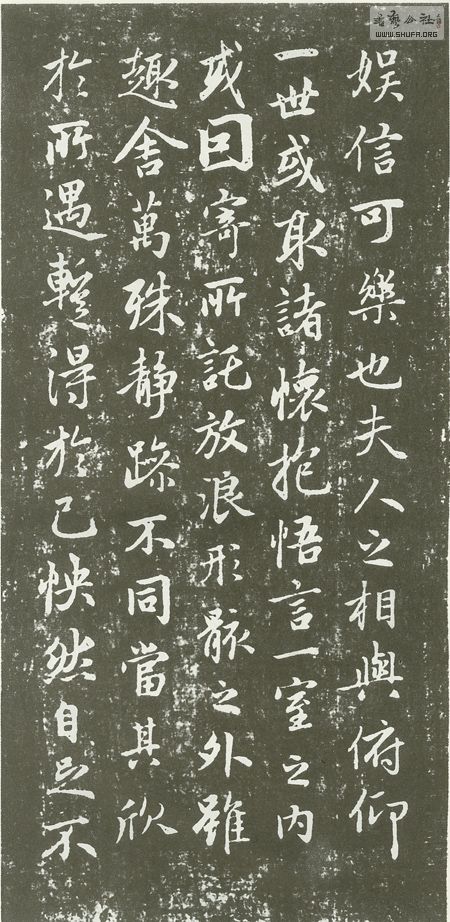 書藝公社
WWW.SHUFA.ORG
娛信可樂也夫人之相與俯仰
一世或取諸懷抱悟言一室之内
或因寄所託放浪形骸之外雖
趣舍萬殊静躁不同當其欣
於所遇蹔得於己怏然自足不